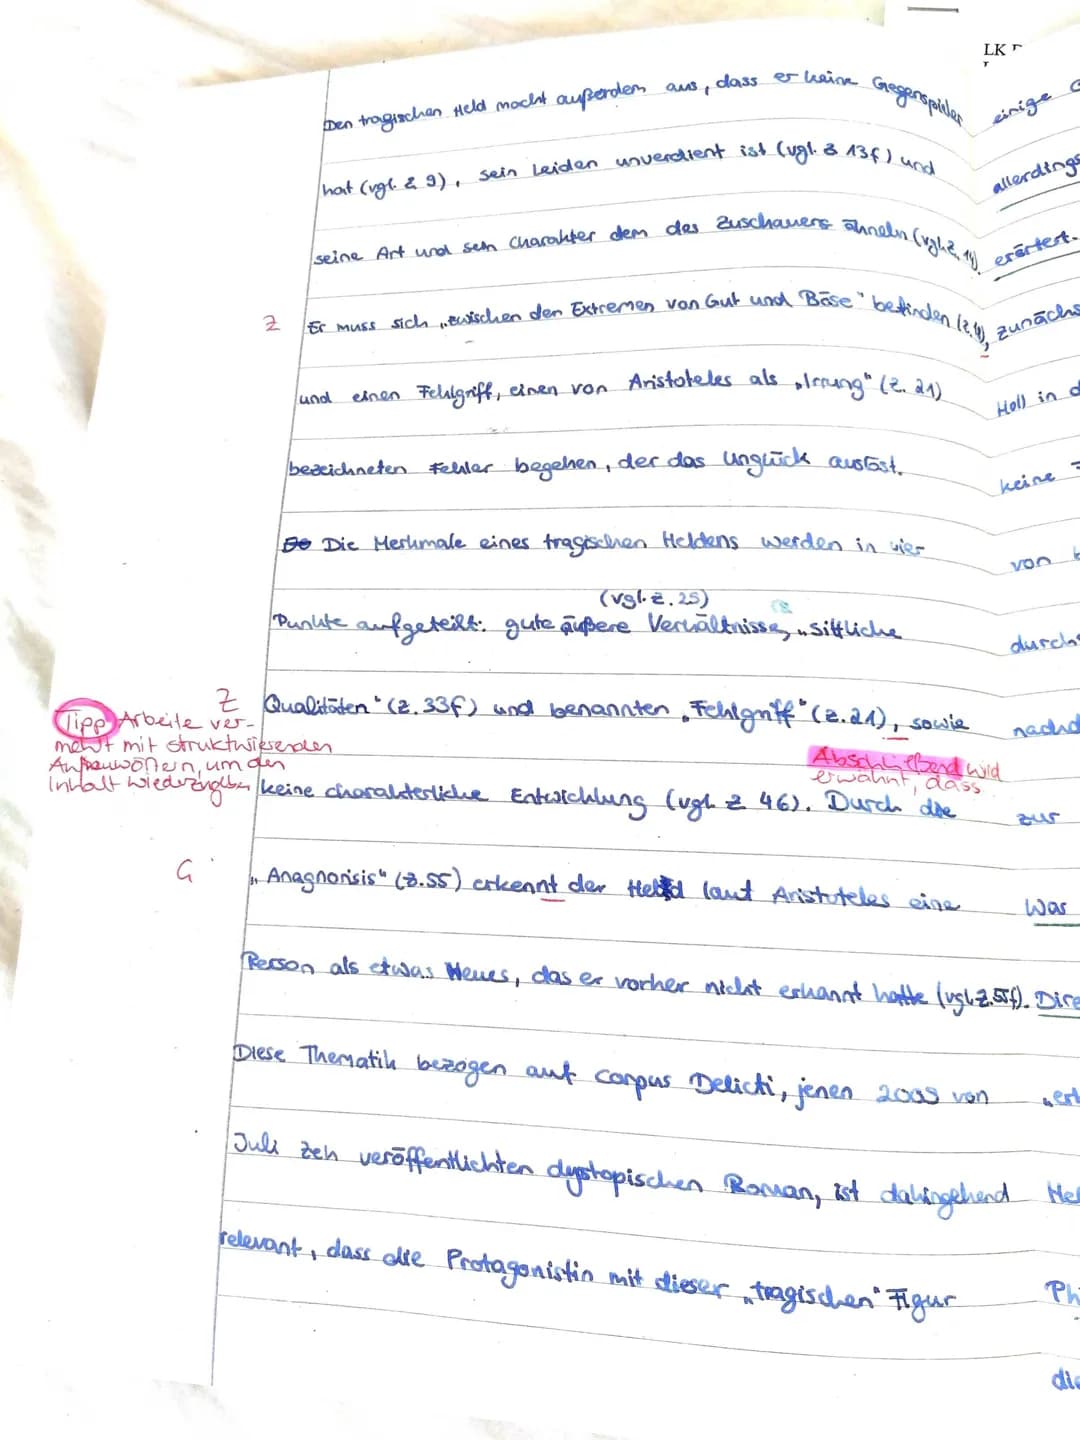 LK
Den tragischen Held macht außerdem aus, dass er keine Gegenspieler
hat (vgl. Z 9), sein Leiden unverdient ist (vgl. Z 13f) und
seine Art und sein Charakter dem des Zuschauers ähneln (vgl. Z. 14)
Z
Er muss sich „zwischen den Extremen von Gut und Böse" befinden
und einen Fehlgriff, einen von Aristoteles als „Irrung" (Z. 21)
bezeichneten Fehler begehen, der das Unglück auslöst.
Die Merkmale eines tragischen Heldens werden in vier
(vgl. Z. 25)
Punkte aufgeteilt: gute äußere Verhältnisse, „sittliche
Z
Qualitäten" (Z. 33f) und benannten „Fehlgriff" (Z. 21), sowie
Tipp Arbeite ver-
mehrt mit
um den
Inhalt
Abschließend wird
erwähnt, dass
keine charakterliche Entwicklung (vgl. Z 46). Durch die
G
„Anagnorisis" (Z. 55) erkennt der Held laut Aristoteles eine
Person als etwas Neues, das er vorher nicht erkannt hatte (vgl. Z. 55f).
Diese Thematik bezogen auf Corpus Delicti, jenen 2009 von
Juli Zeh veröffentlichten dystopischen Roman, ist dahingehend
relevant, dass die Protagonistin mit dieser „tragischen" Figur
einige
allerdings
erörtert.
zunächs
Holl in d
keine
von
durch
nachd
zur
Was
Dire
„ert
Hel
Ph
die